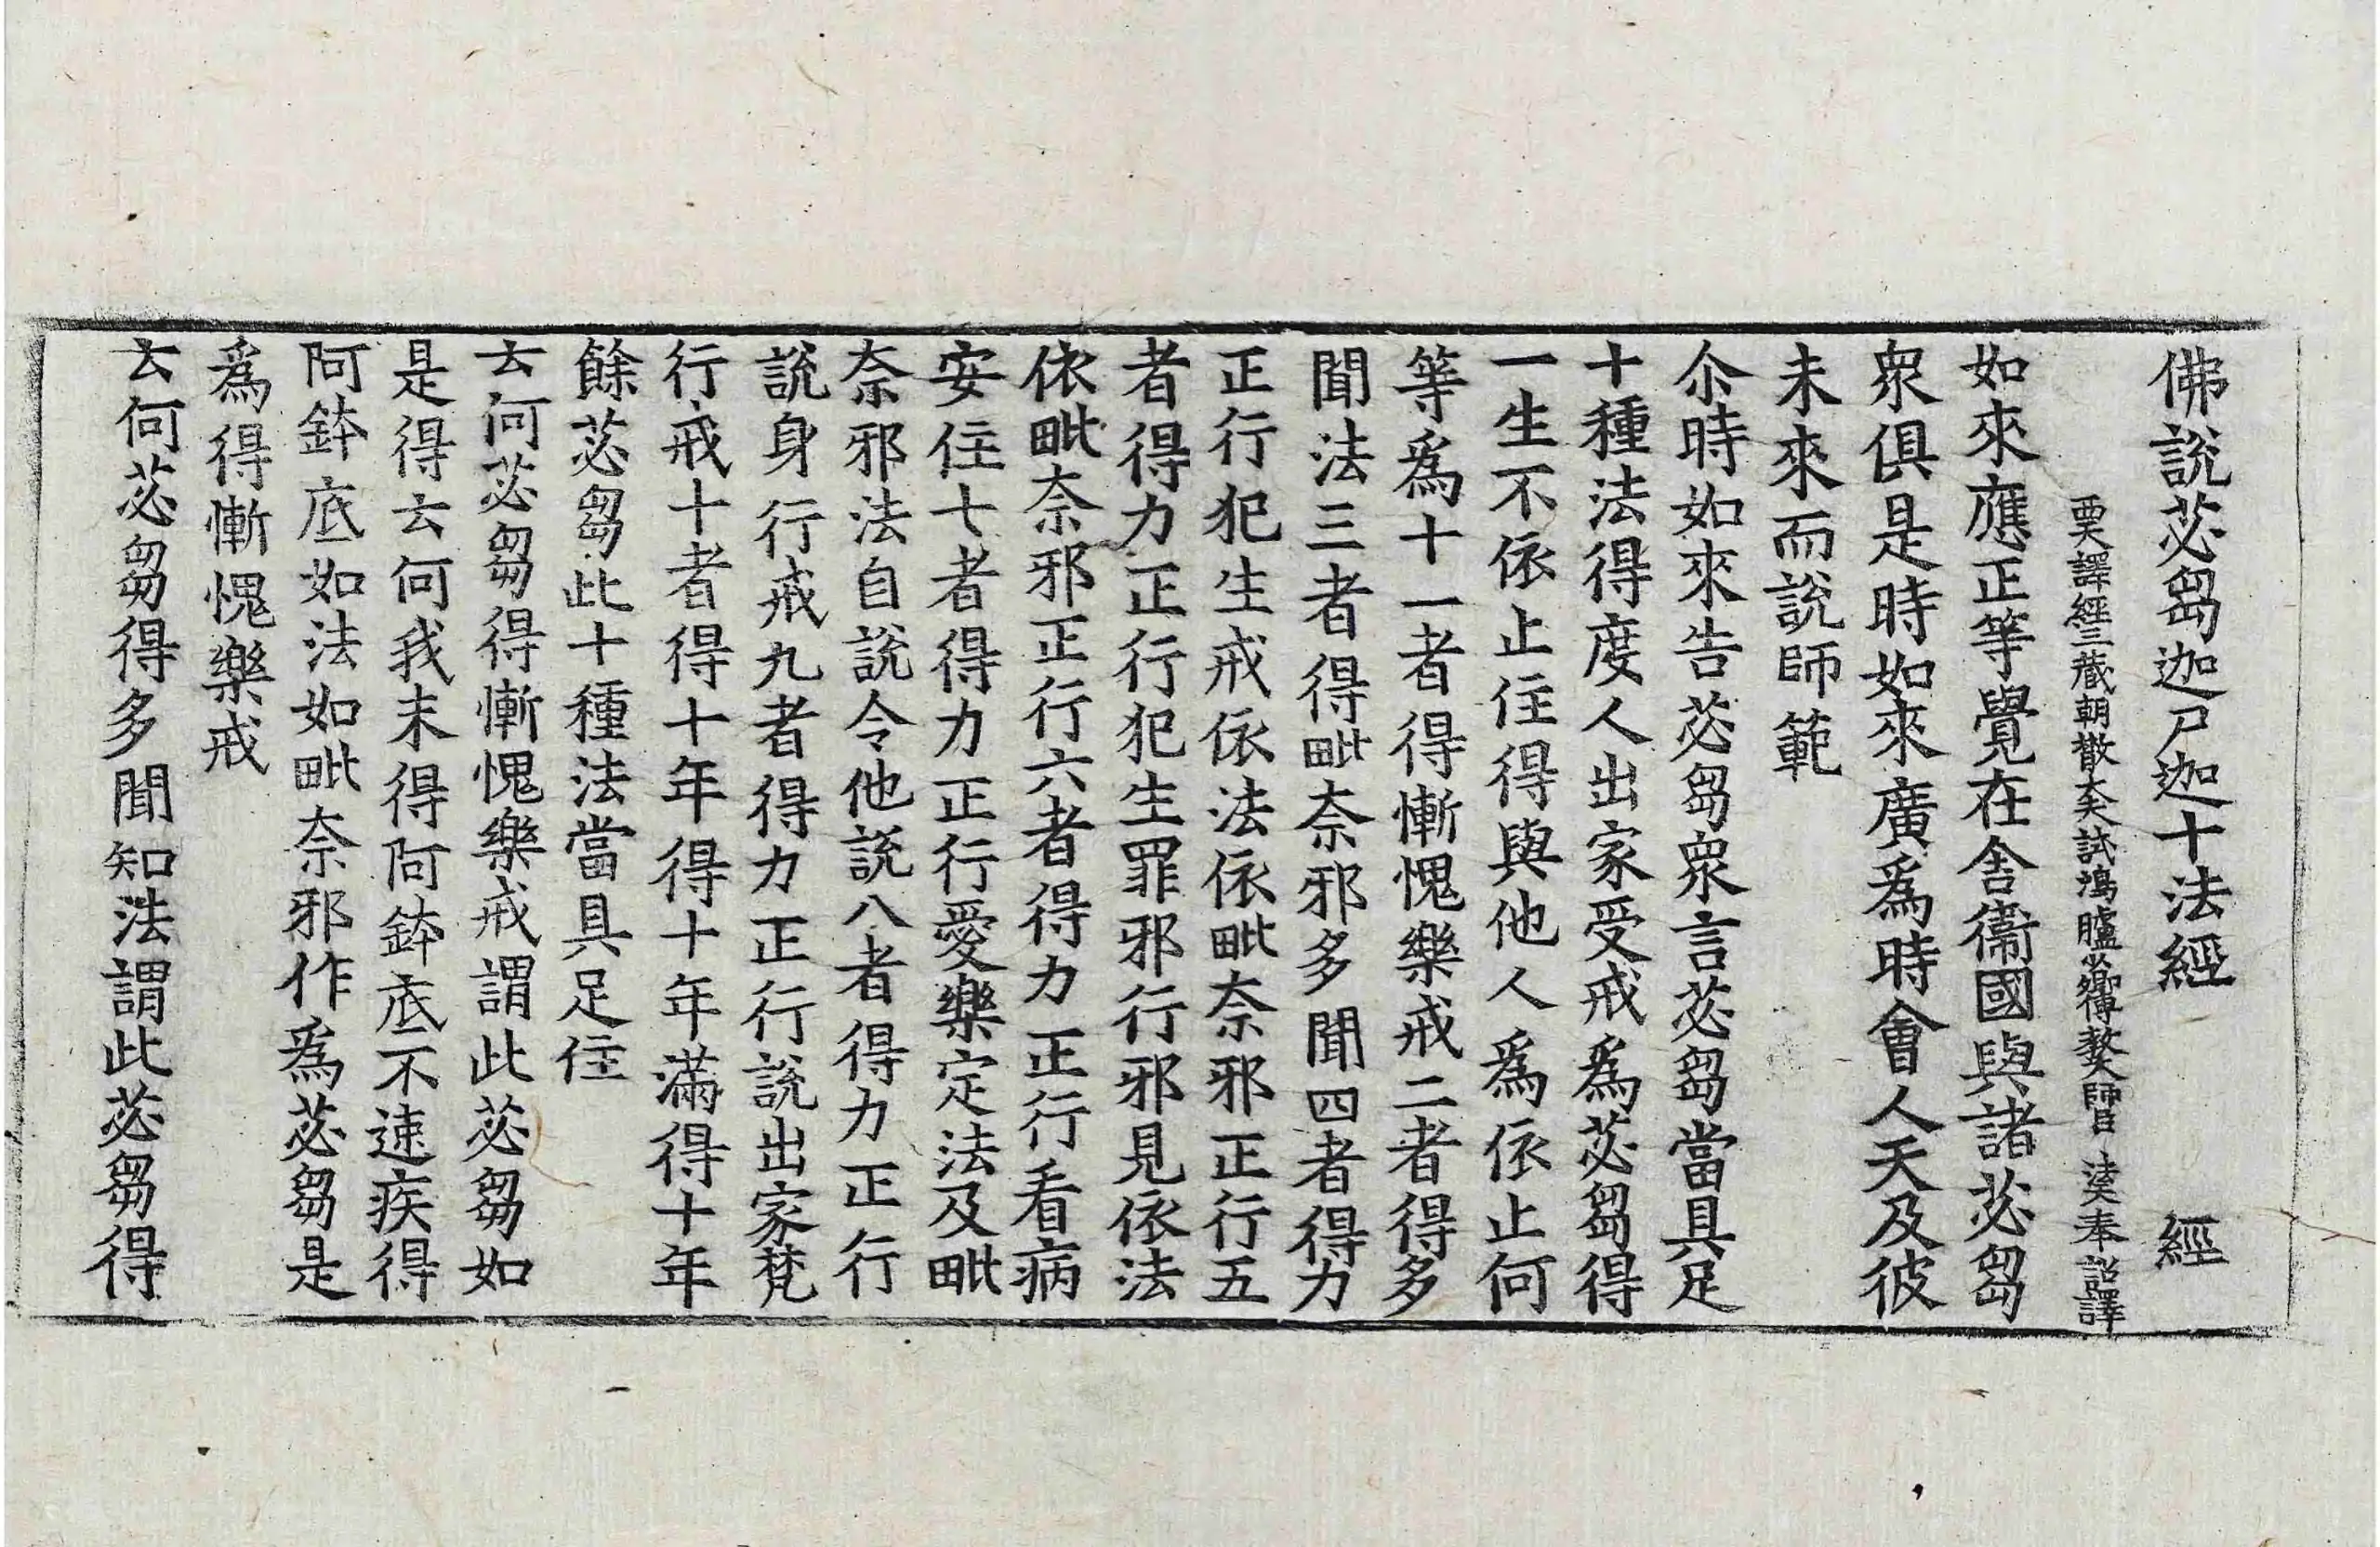 佛說苾芻迦尸迦十法經　經
西天譯經三藏朝散大夫試鴻臚少卿傳教大師臣法天奉詔譯
如來應正等覺在舍衞國與諸苾芻
衆俱是時如來廣爲時會人天及彼
未來而說師範
尒時如來告苾芻衆言苾芻當具足
十種法得度人出家受戒爲苾芻得
一生不依止住得與他人爲依止何
等爲十一者得慚愧樂戒二者得多
聞法三者得毗奈邪多聞四者得力
正行犯生戒依法依毗奈邪正行五
者得力正行犯生罪邪行邪見依法
依毗奈邪正行六者得力正行看病
安住七者得力正行愛樂定法及毗
奈邪法自說令他說八者得力正行
說身行戒九者得力正行說出家梵
行戒十者得十年得十年滿得十年
餘苾芻此十種法當具足住
云何苾芻得慚愧樂戒謂此苾芻如
是得云何我未得阿鉢底不速疾得
阿鉢底如法如毗奈邪作爲苾芻是
爲得慚愧樂戒
云何苾芻得多聞知法謂此苾芻得